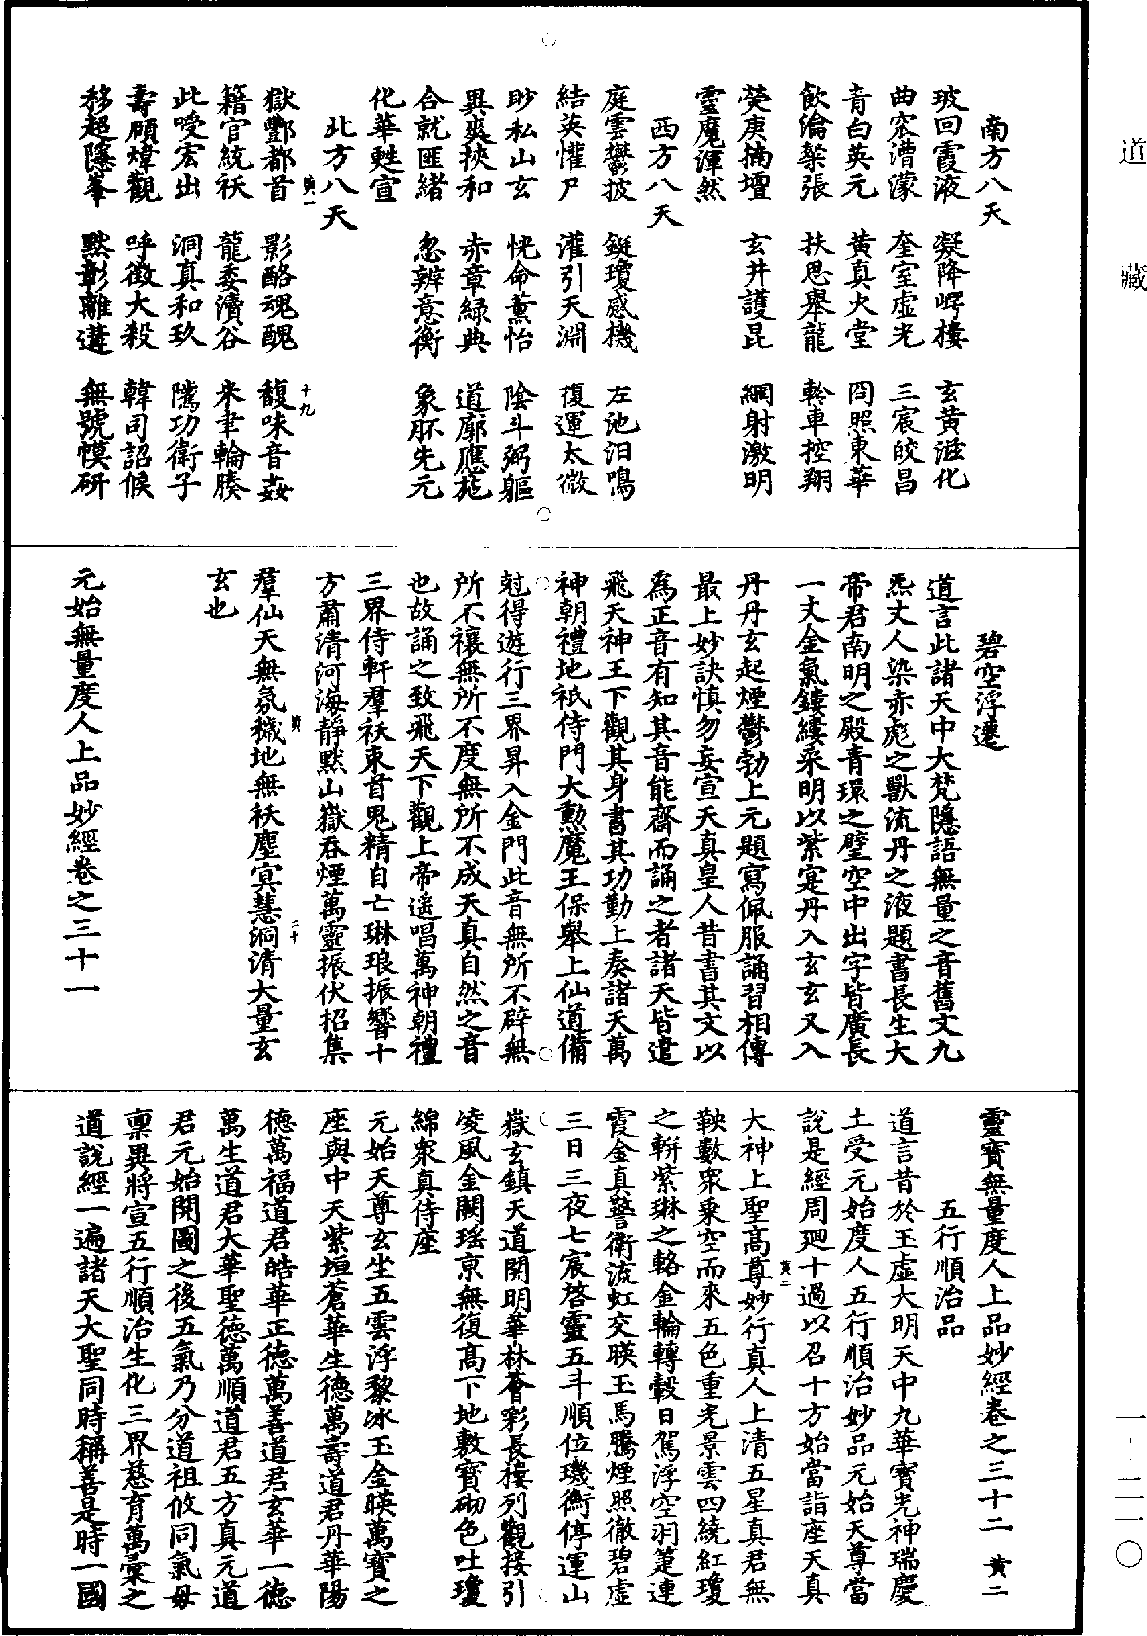 道藏
南方八天
玻回霞液 凝降崿樓 玄黃滋化
曲宓漕濛 奎室虛光 三宸皎昌
青白英元 黃真火堂 冏照東華
飲淪槃張 扶思舉龍 軨車控翔
熒庚摛壇 玄井護昆 網射激明
靈魔渾然
西方八天
庭雲鬱披 鋌瓊感機 左池汨鳴
結英懼尸 灌引天淵 復運太微
眇私山玄 恍命薰怡 陰斗弼軀
異爽挾和 赤章綠典 道廓應施
合就匪緒 忽辨意衡 象胚先元
化華甦宣
北方八天
黃一 十九
獄酆都首 影酪魂醜 馥味音姦
籍官統袄 龍委瀆谷 來聿輪腠
此喚宏出 洞真和玖 隲功衛子
壽頎煒觀 呼徵大殺 韓司詔候
移超隱峯 默彰離遘 無號慔研
碧空浮遷
道言此諸天中大梵隱語無量之音舊文九
炁丈人染赤彪之獸流丹之液題書長生大
帝君南明之殿青環之壁空中出字皆廣長
一丈金氣鏤縷采明以紫寔丹入玄玄又入
丹丹玄起煙鬱勃上元題寫佩服誦習相傳
最上妙訣慎勿妄宣天真皇人昔書其文以
為正音有知其音能齋而誦之者諸天皆遣
飛天神王下觀其身書其功勤上奏諸天萬
神朝禮地祇侍門大勳魔王保舉上仙道備
尅得遊行三界昇入金門此音無所不辟無
所不禳無所不度無所不成天真自然之音
也故誦之致飛天下觀上帝遙唱萬神朝禮
三界侍軒羣袄束首鬼精自亡琳琅振響十
方肅清河海靜默山嶽吞煙萬靈振伏招集
黃 二十
羣仙天無氛穢地無袄塵冥慧洞清大量玄
玄也
元始無量度人上品妙經卷之三十一
靈寶無量度人上品妙經卷之三十二 黃二
五行順治品
道言昔於玉虛大明天中九華寶光神瑞慶
土受元始度人五行順治妙品元始天尊當
說是經周迴十過以召十方始當詣座天真
黃二
大神上聖高尊妙行真人上清五星真君無
鞅數眾乘空而來五色重光景雲四繞紅瓊
之軿紫琳之輅金輪轉轂日駕浮空羽筵連
霞金真警衛流虹交暎玉馬騰煙照徹碧虛
三日三夜七宸啓靈五斗順位璣衡停運山
嶽玄鎮天道開明華林薈彩長樓列觀接引
淩風金闕瑤京無復高下地敷寶砌色吐瓊
綿眾真侍座
元始天尊玄生五雲浮黎冰玉金暎萬寶之
座與中天紫垣蒼華生德萬壽道君丹華陽
德萬福道君皓華正德萬善道君玄華一德
萬生道君大華聖德萬順道君五方真元道
君元始開圖之後五氣乃分道祖攸同氣毋
稟異將宣五行順治生化三界慈育萬彙之
道說經一遍諸天大聖同時稱善是時一國
一-二一〇